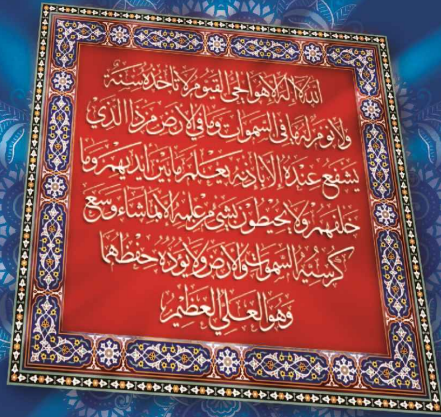 الله لا إله إلا هو الحي القيوم لا تأخذه سنة
ولا نوم له ما في السموات وما في الأرض من ذا الذي
يشفع عنده إلا بإذنه يعلم ما بين أيديهم وما
خلفهم ولا يحيطون بشيء من علمه إلا بما شاء وسع
كرسيه السموات والأرض ولا يؤده حفظهما
وهو العلي العظيم